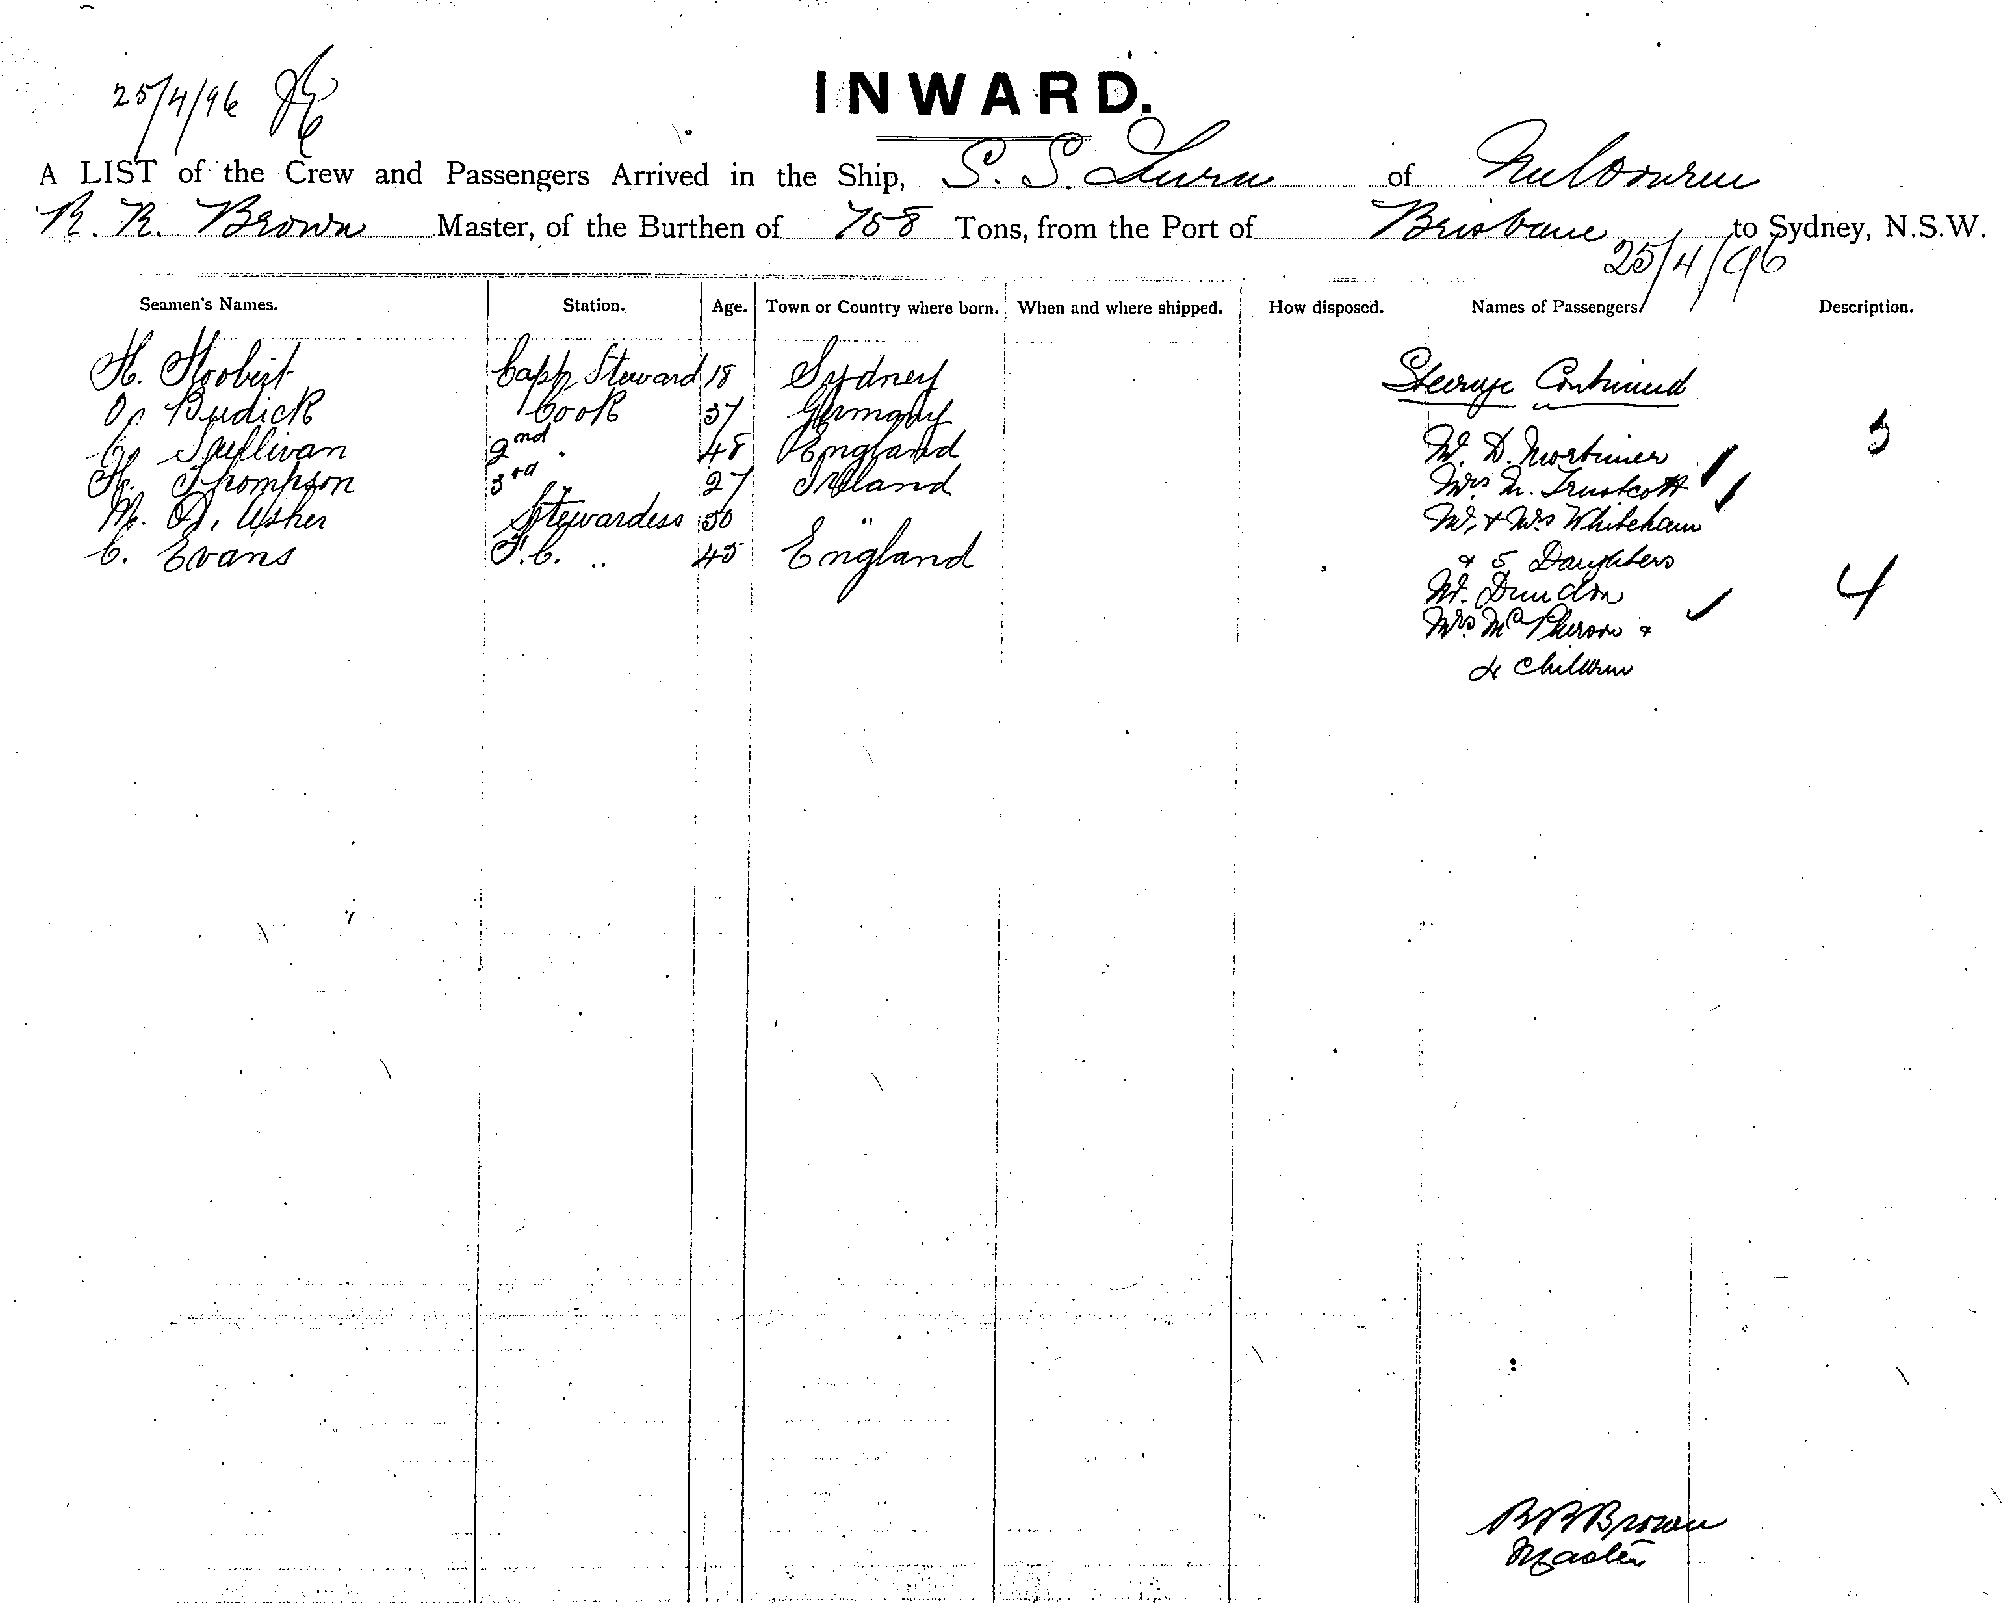 25/4/96
INWARD.
A LIST of the Crew and Passengers Arrived in the Ship, S. S. Tura of Melbourne
R. R. Brown Master, of the Burthen of 758 Tons, from the Port of Brisbane to Sydney, N.S.W.
25/4/96
Seamen's Names. Station. Age. Town or Country where born. When and where shipped. How disposed. Names of Passengers. Description.
H. Capt Steward 18 Sydney
Budick Cook 37 Germany
C. Sullivan 2nd " 48 England
H. Thompson 3rd " 27 Ireland
M. A. Usher Stewardess 50 "
C. Evans F.C. " 45 England
Steerage Continued
Mr. D. Mortimer 3
Mrs M. Truscott
Mr. & Mrs Whiteham
& 5 Daughters
Mr. Dundon 4
Mrs McPherson &
4 Children
R R Brown
Master